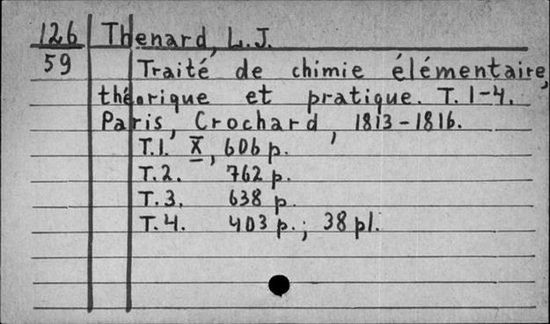 126 Thenard, L.J.
59 Traité de chimie élémentaire,
théorique et pratique. T. 1-4.
Paris, Crochard, 1813-1816.
T.1. X, 606 p.
T.2. 762 p.
T.3. 638 p.
T.4. 403 p.; 38 pl.